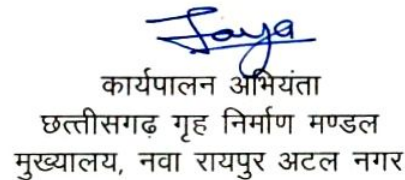 कार्यपालन अभियंता
छत्तीसगढ़ गृह निर्माण मण्डल
मुख्यालय, नवा रायपुर अटल नगर